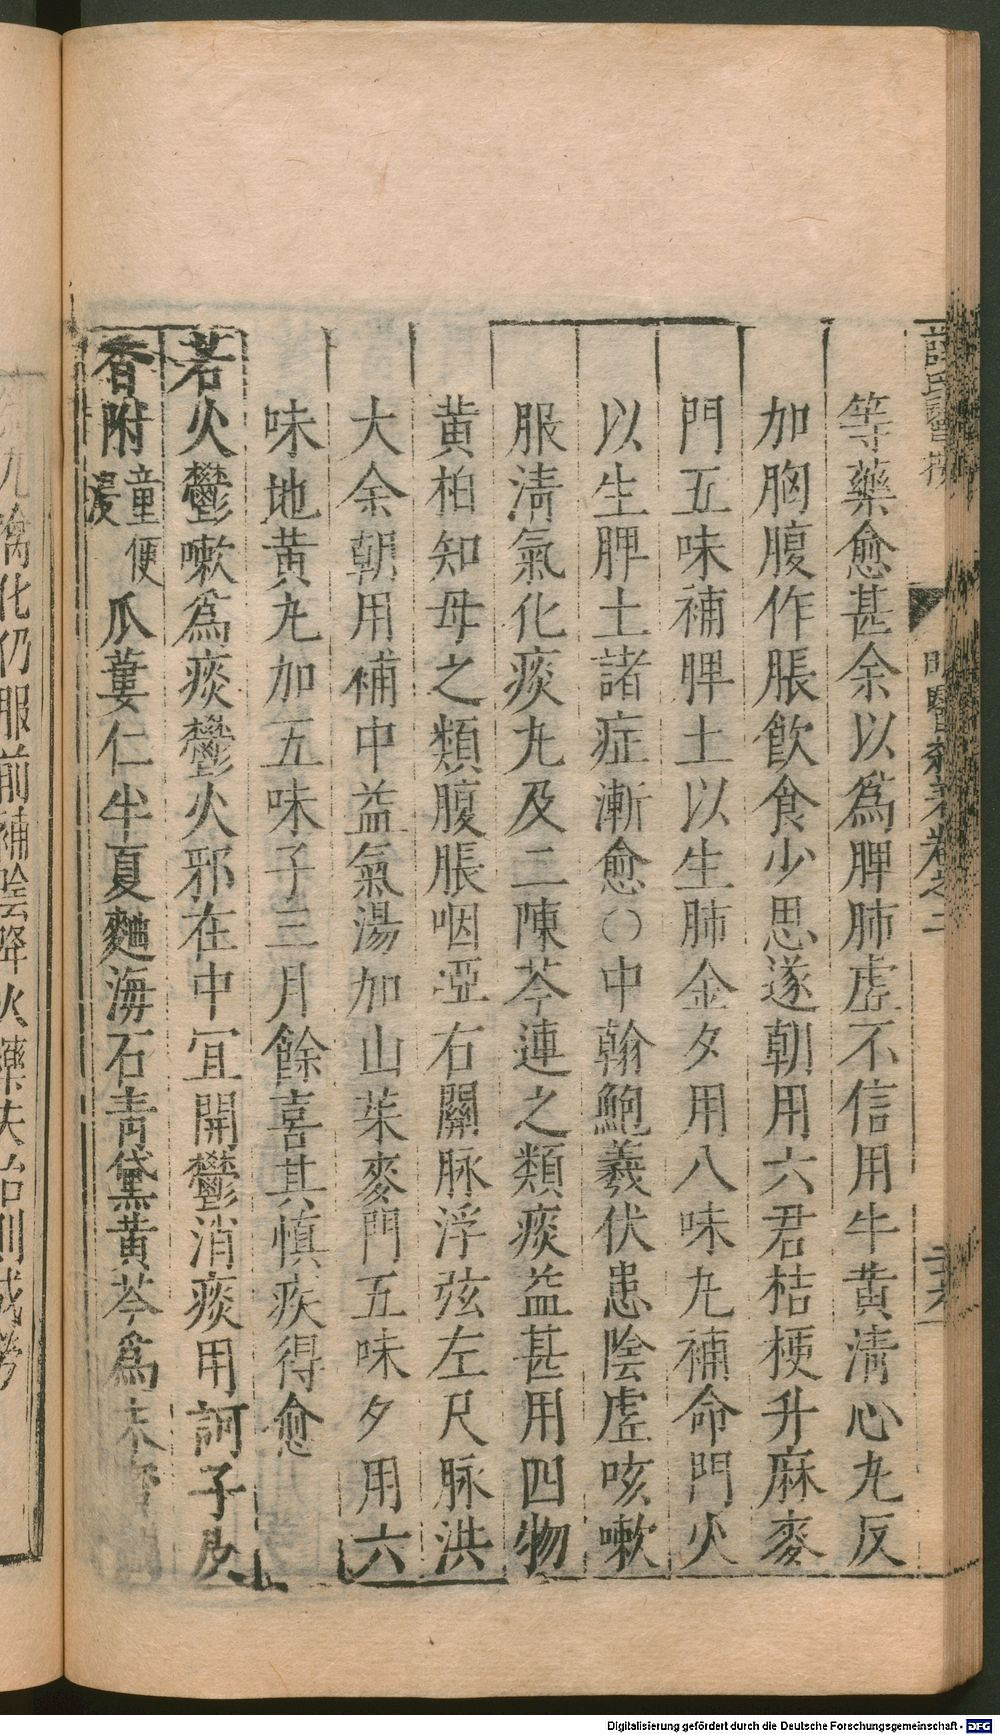 等藥愈甚余以爲脾肺虛不信用牛黄清心丸反
加胸腹作脹飲食少思遂朝用六君桔梗升麻麥
門五味補脾土以生肺金夕用八味丸補命門火
以生脾土諸症漸愈○中翰鮑羲伏患陰虛咳嗽
服清氣化痰丸及二陳芩連之類痰益甚用四物
黄柏知母之類腹脹咽啞右關脉浮弦左尺脉洪
大余朝用補中益氣湯加山茱麥門五味夕用六
味地黄丸加五味子三月餘喜其慎疾得愈
若火鬱嗽爲痰鬱火邪在中冝開鬱消痰用訶子皮
香附童便浸瓜蔞仁半夏麯海石青黛黄芩爲末
丸噙化仍服前補陰降火藥失治則成勞
明醫雜著卷之二
Digitalisierung gefördert durch die Deutsche Forschungsgemeinschaft - DFG